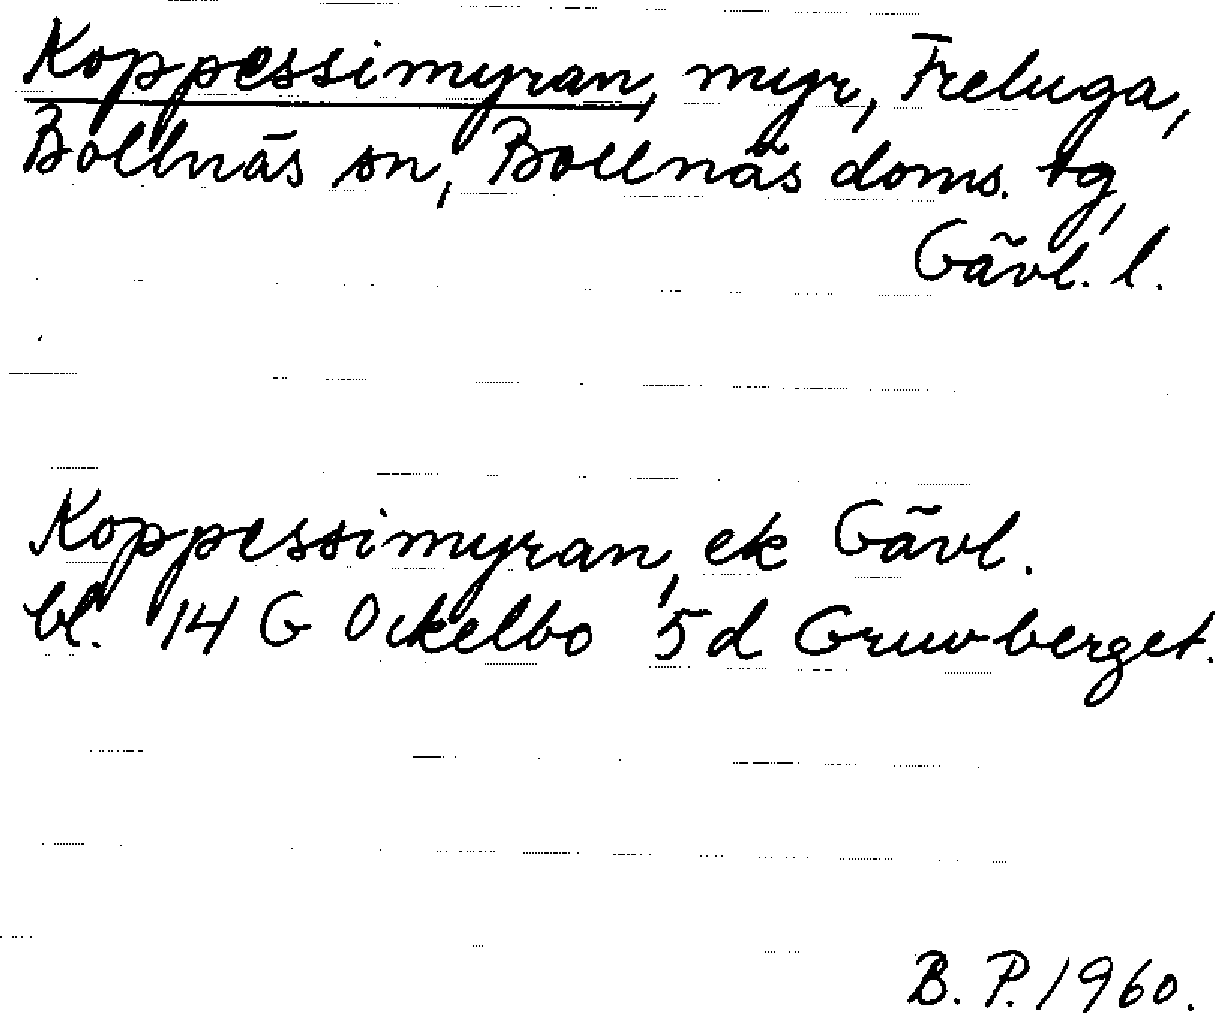 Koppessimyran, myr, Freluga,
Bollnäs sn, Bollnäs doms. tg,
Gävl. l.
Koppessimyran, ek Gävl.
bl. 14 G Ockelbo 5d Gruvberget.
B. P. 1960.